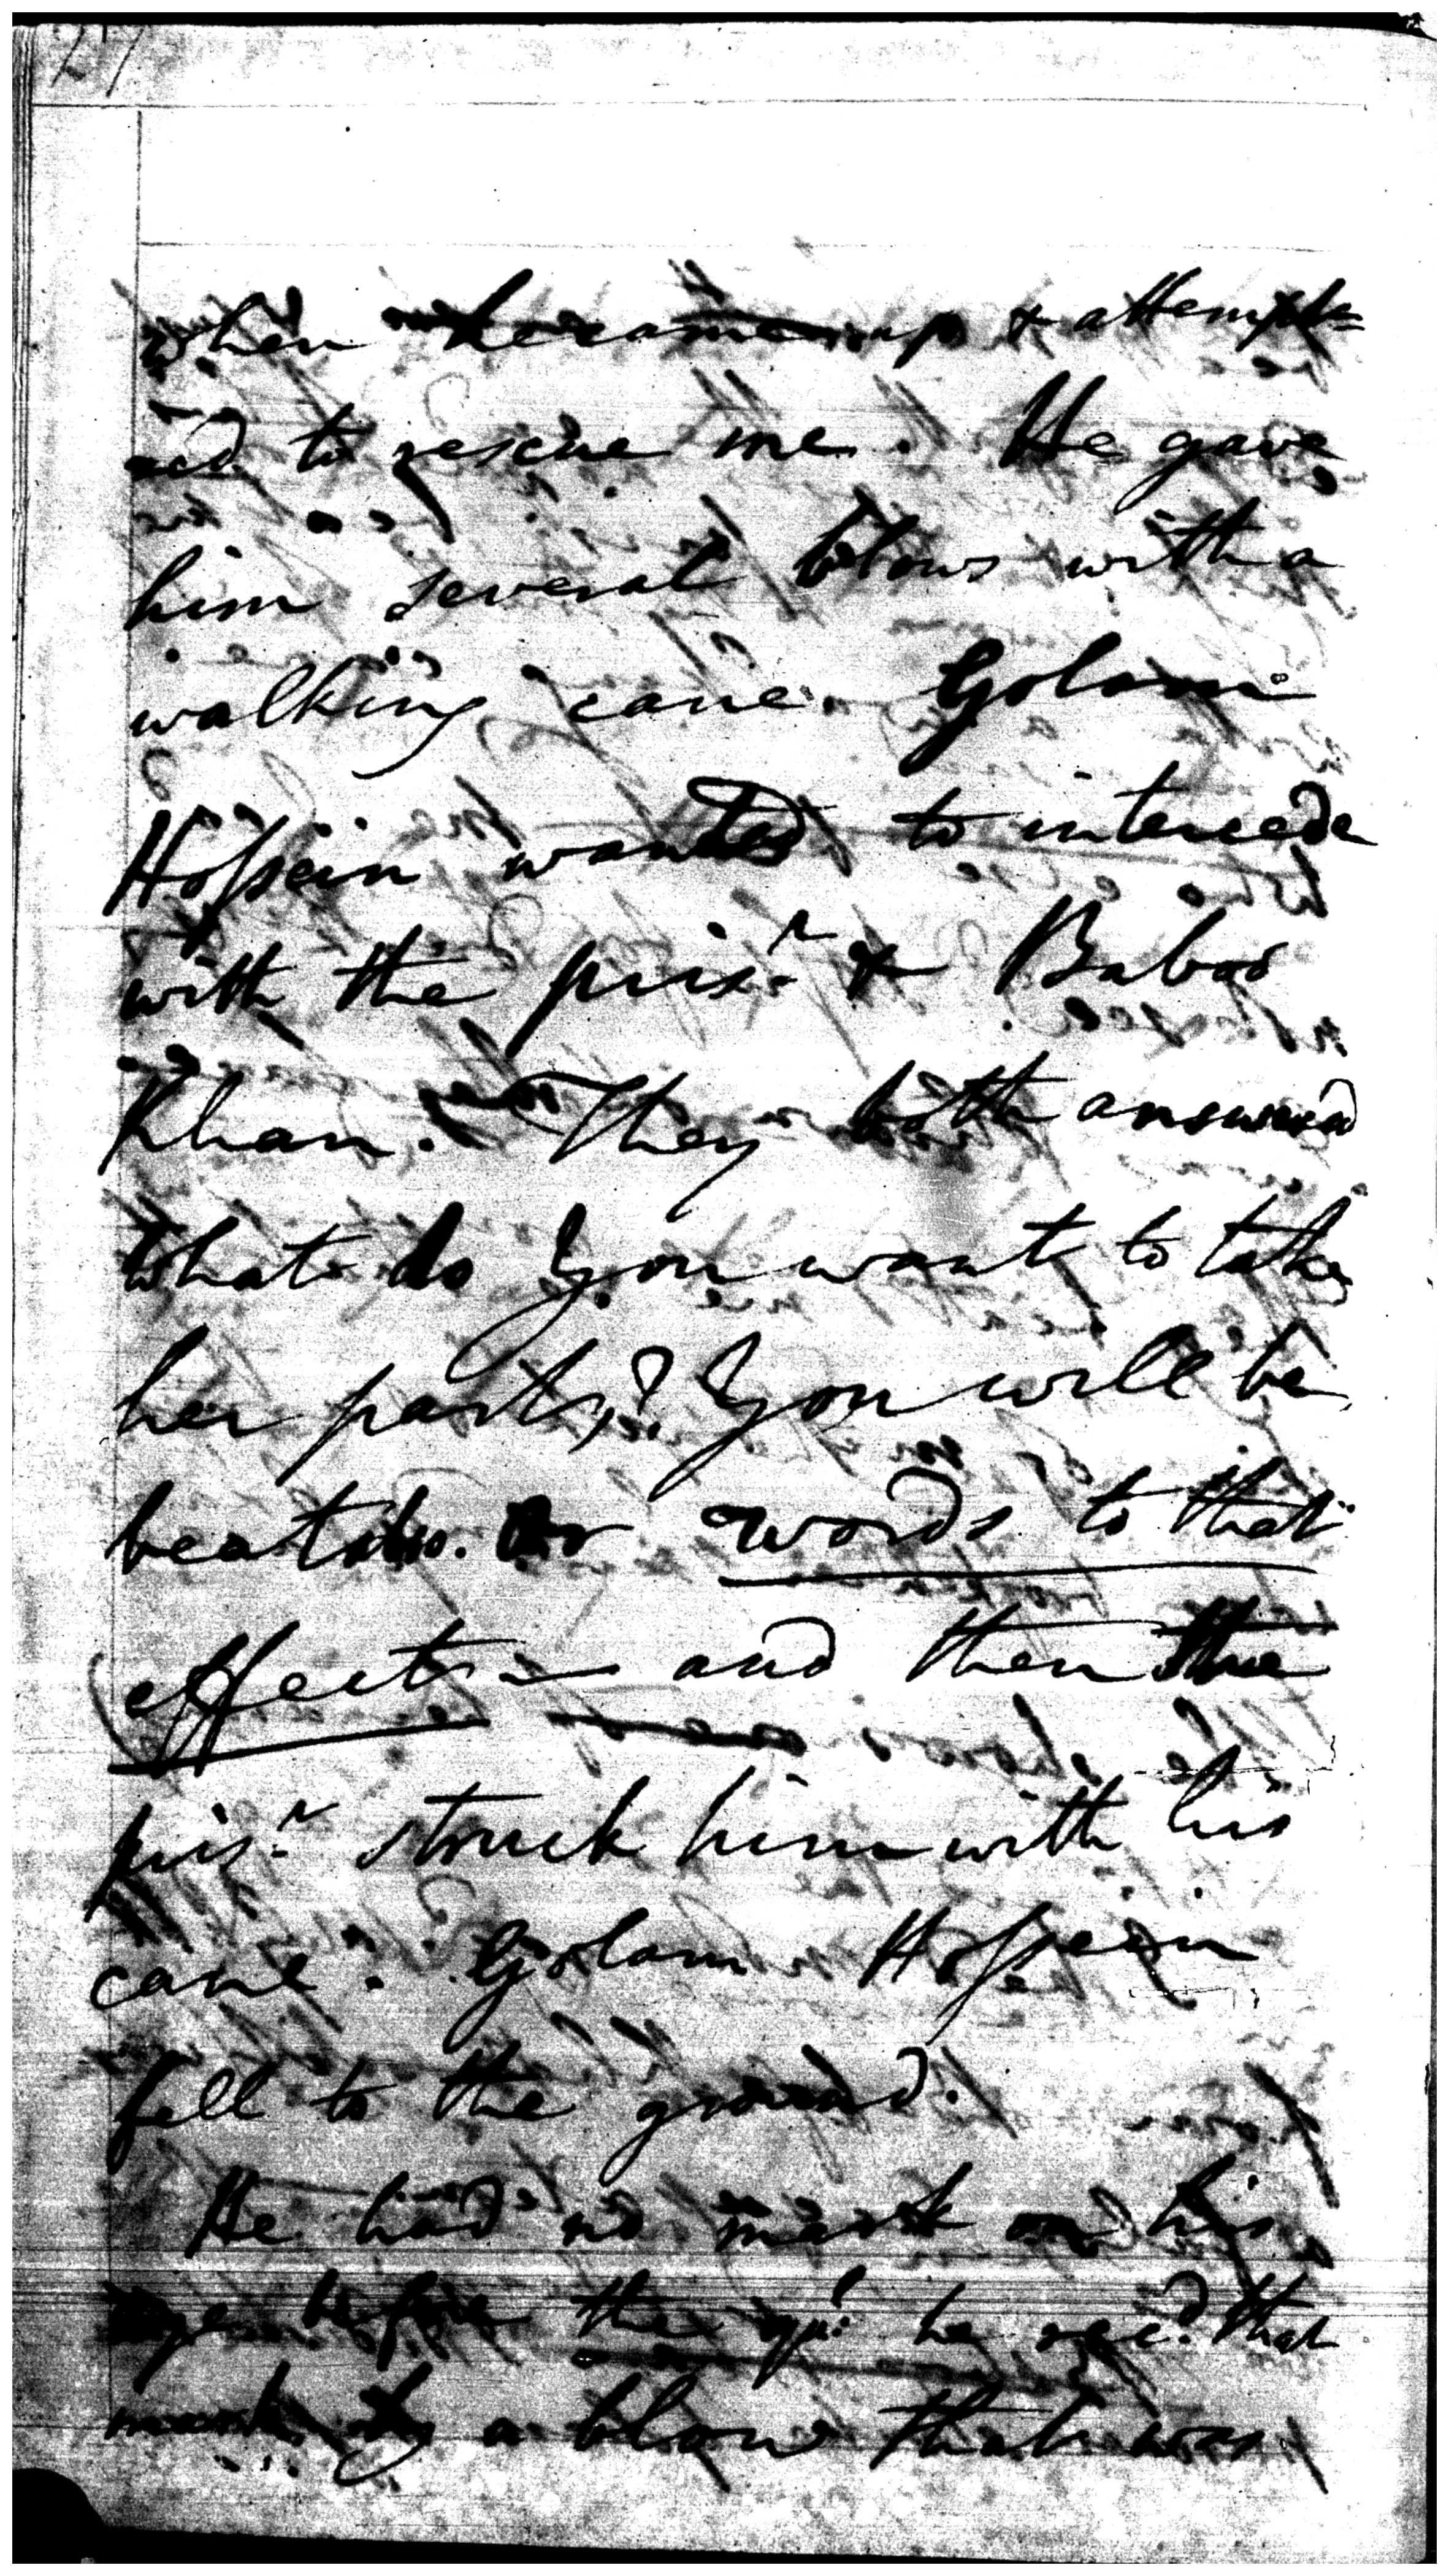 when he came up & attempt=
ed to rescue me. He gave
him several blows with a
walking cane. Golam
Hossein wanted to intercede
with the pris.r & Baboo
Khan. They both answered
what do you want to take
her part,? You will be
beat also. Or words to that
effect – and then the
pris.r struck him with his
cane. Golam Hossein
fell to the ground.
He had no mark on his
eye before the he rec.d that
mark by a blow that was